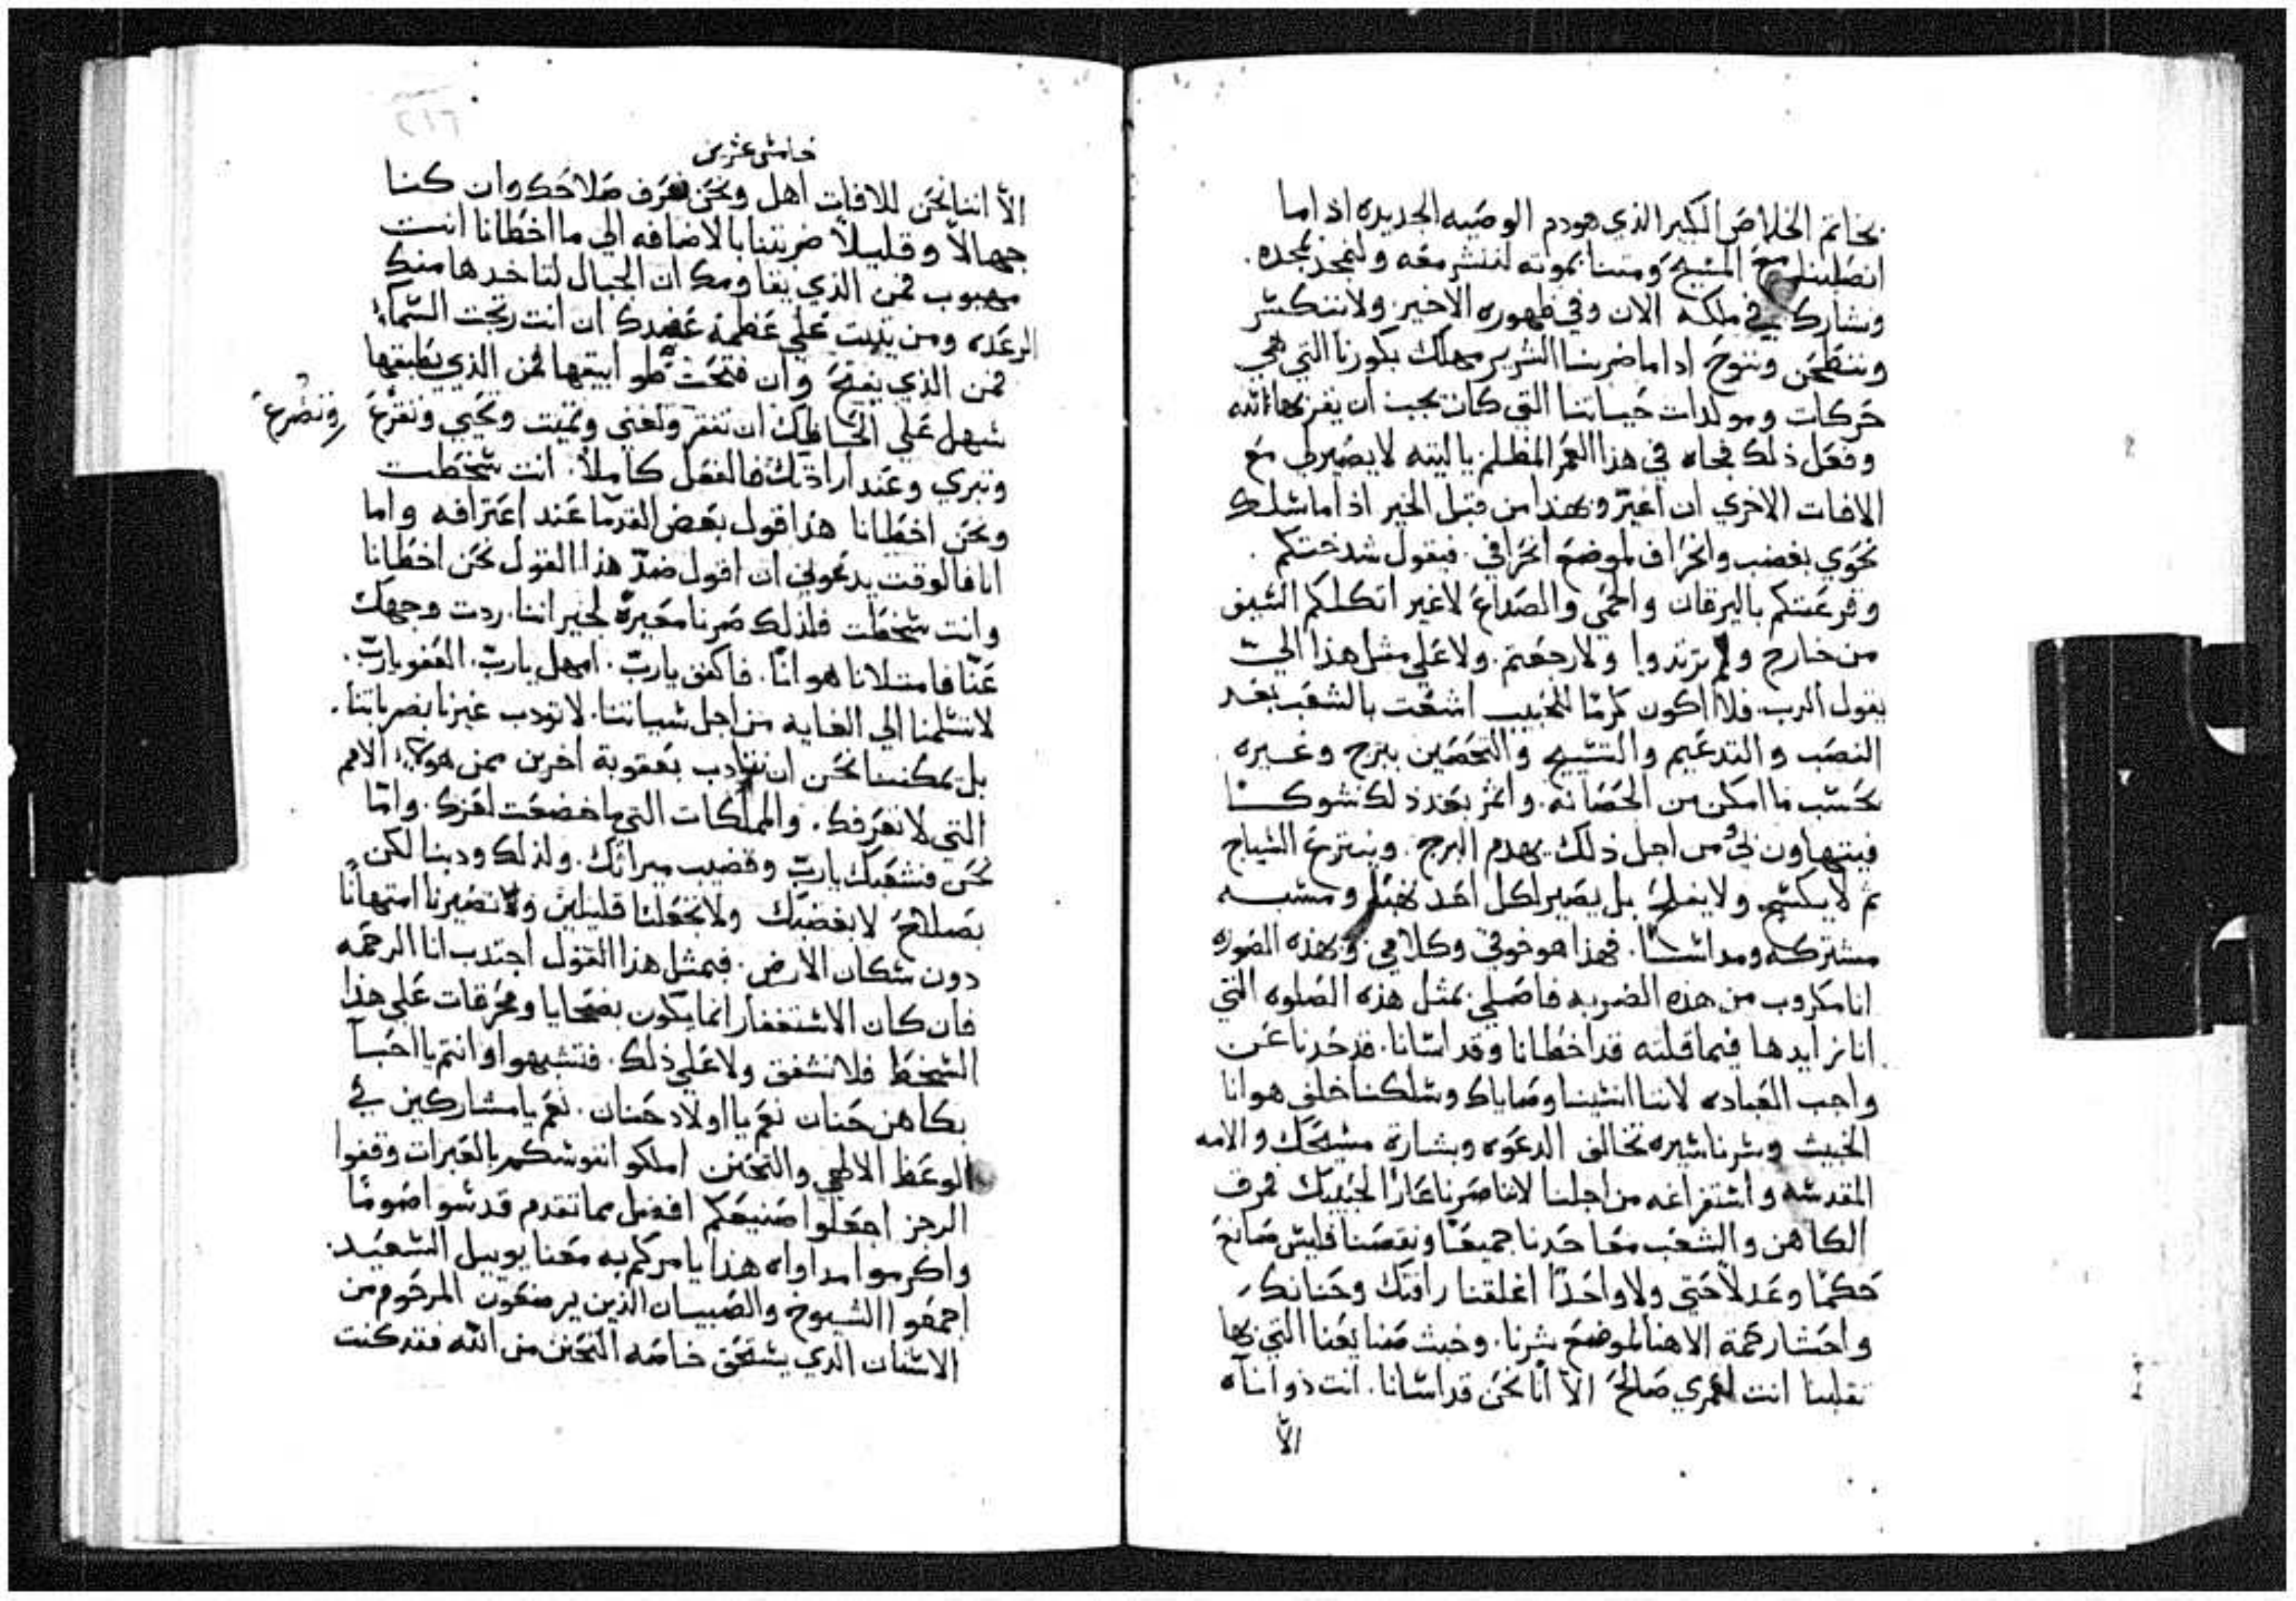 بخاتم الخلاص الكبير الذي هو دم الوصيه الجديده اذ اما
انصلبنا مع المسيح ومتنا بموته لننشر معه ولنمجد بمجده.
ونشارك في ملكه الان وفي ظهوره الاخير. ولا ننكسر
وننطحن وننوح اذا ما ضربنا الشرير مهلك بكورنا التي هي
حركات ومولدات حياتنا التي كان يجب ان يفز بها لله
وفعل ذلك فجاه في هذا العمر المظلم ياليته لا يصير لي مع
الافات الاخري ان اعير وبهذا من قبل الخير اذ اما سلك
نحوي بغضب وانحراف لموضع انحرافي. فيقول شدختكم.
وقرعتكم باليرقان والحمي والصداع لاغير اثكلكم السيف
من خارج ولم ترتدوا ولا رجعتم. ولا علي مثل هذا اليّ
يقول الرب. فلا اكون كرمًا للحبيب اشغت بالشغب بعد
النصب والتدعيم والتسييج والتحصين ببرج وغيره
بحسب ما امكن من الحصانه. واثمر بعد ذلك شوكًا
فيتهاون بي من اجل ذلك. يهدم البرج. وينتزع السياج
ثم لا يكسح. ولا يفلح بل يصير لكل احد نهبًا ومسبه
مشتركه ومداسًا. فهذا هو خوفي وكلامي وبهذه الصوره
انا مكروب من هذه الضربه فاصلي بمثل هذه الصلوه التي
انا نزايدها فيما قلته قد اخطانا وقد اسانا. قد حدنا عن
واجب العباده لاننا انسينا وصاياك وسلكنا خلف هوانا
الخبيث وسرنا سيره تخالف الدعوه وبشارة مسيحك والامه
المقدسه واستفراغه من اجلنا لاننا صرنا عارًا لحبيبك فرف
الكاهن والشعب معًا حدنا جميعًا ونقصنا فليس صانع
حكمًا وعدلًا حتي ولا واحدًا اغلقنا رافتك وحنانك
واحشا رحمة الاهنا لموضع شرنا. وخبث صنايعنا التي بها
تقلبنا انت لعمري صالح الا انا نحن قد اسانا. انت ذو اناه
الا
خامس عشرين
الّا اننا نحن للافات اهل ونحن نعرف صلاحك وان كنا
جهالًا وقليلًا ضربتنا بالاضافه الي ما اخطانا انت
مهبوب فمن الذي يقاومك ان الجبال لتاخدها منك
الرعده ومن يثبت علي عظمة عضدك ان انت رتجت السماء
فمن الذي يفتح وان فتحت طوابيقها فمن الذي يطبقها
سهل علي الحاظك ان تفقر وتغني وتميت وتحيي وتقرع
وتصرع
وتبري وعند ارادتك فالفعل كاملًا. انت سخطت
ونحن اخطانا هذا قول بعض القدما عند اعترافه واما
انا فالوقت يدعوني ان اقول ضدّ هذا القول نحن اخطانا
وانت سخطت فلذلك صرنا معيرة لجيراننا. ردت وجهك
عنّا فامتلانا هوانًا. فاكفف يارب. امهل يارب. العفو يارب.
لا تسلمنا الي الغايه من اجل سياتنا. لا تودب غيرنا بضرباتنا.
بل يمكننا نحن ان نتادب بعقوبة اخرين ممن هولاء الامم
التي لا تعرفك. والمملكات التي ما خضعت لعزك. وامّا
نحن فشعبك يارب وقضيب ميراتك. ولذلك ودبنا لكن
بصلاح لا بغضبك ولا تجعلنا قليلين ولا تصيرنا امتهانًا
دون سكان الارض. فبمثل هذا القول اجتدب انا الرحمه
فان كان الاستغفار انما يكون بضحايا ومحرقات علي هذا
السخط فلا نشفق ولا علي ذلك. فتشبهوا وانتم يا احبآ
بكاهن حنان نعم يا اولاد حنان. نعم يا مشاركين في
الوعظ الالهي والتحنن املكو انفوسكم بالعبرات وقفوا
الرجز اجعلوا صنيعكم افضل مما تقدم قدسوا صومًا
واكرموا مداواه هذا يامركم به معنا يوييل السعيد.
اجمعوا الشيوخ والصبيان الذين يرضعون المرحوم من
الاسنان الدي يستحق خاصه التحنن من الله فقد كنت